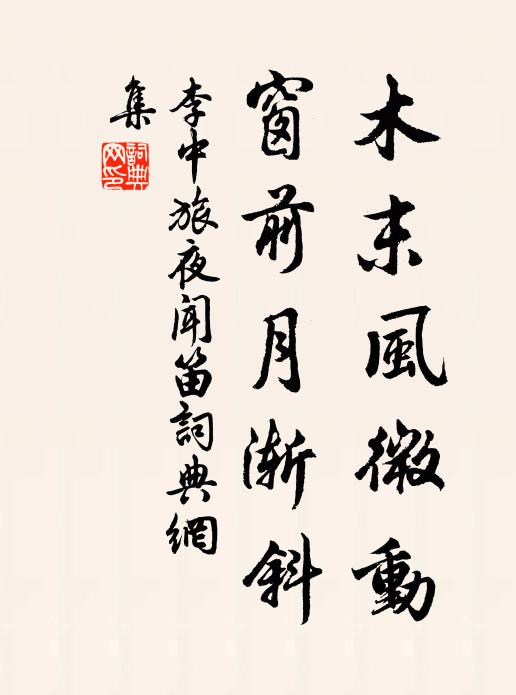 木末風微動
窗前月漸斜
李中旅夜聞笛詞典網
集
詞典
网印